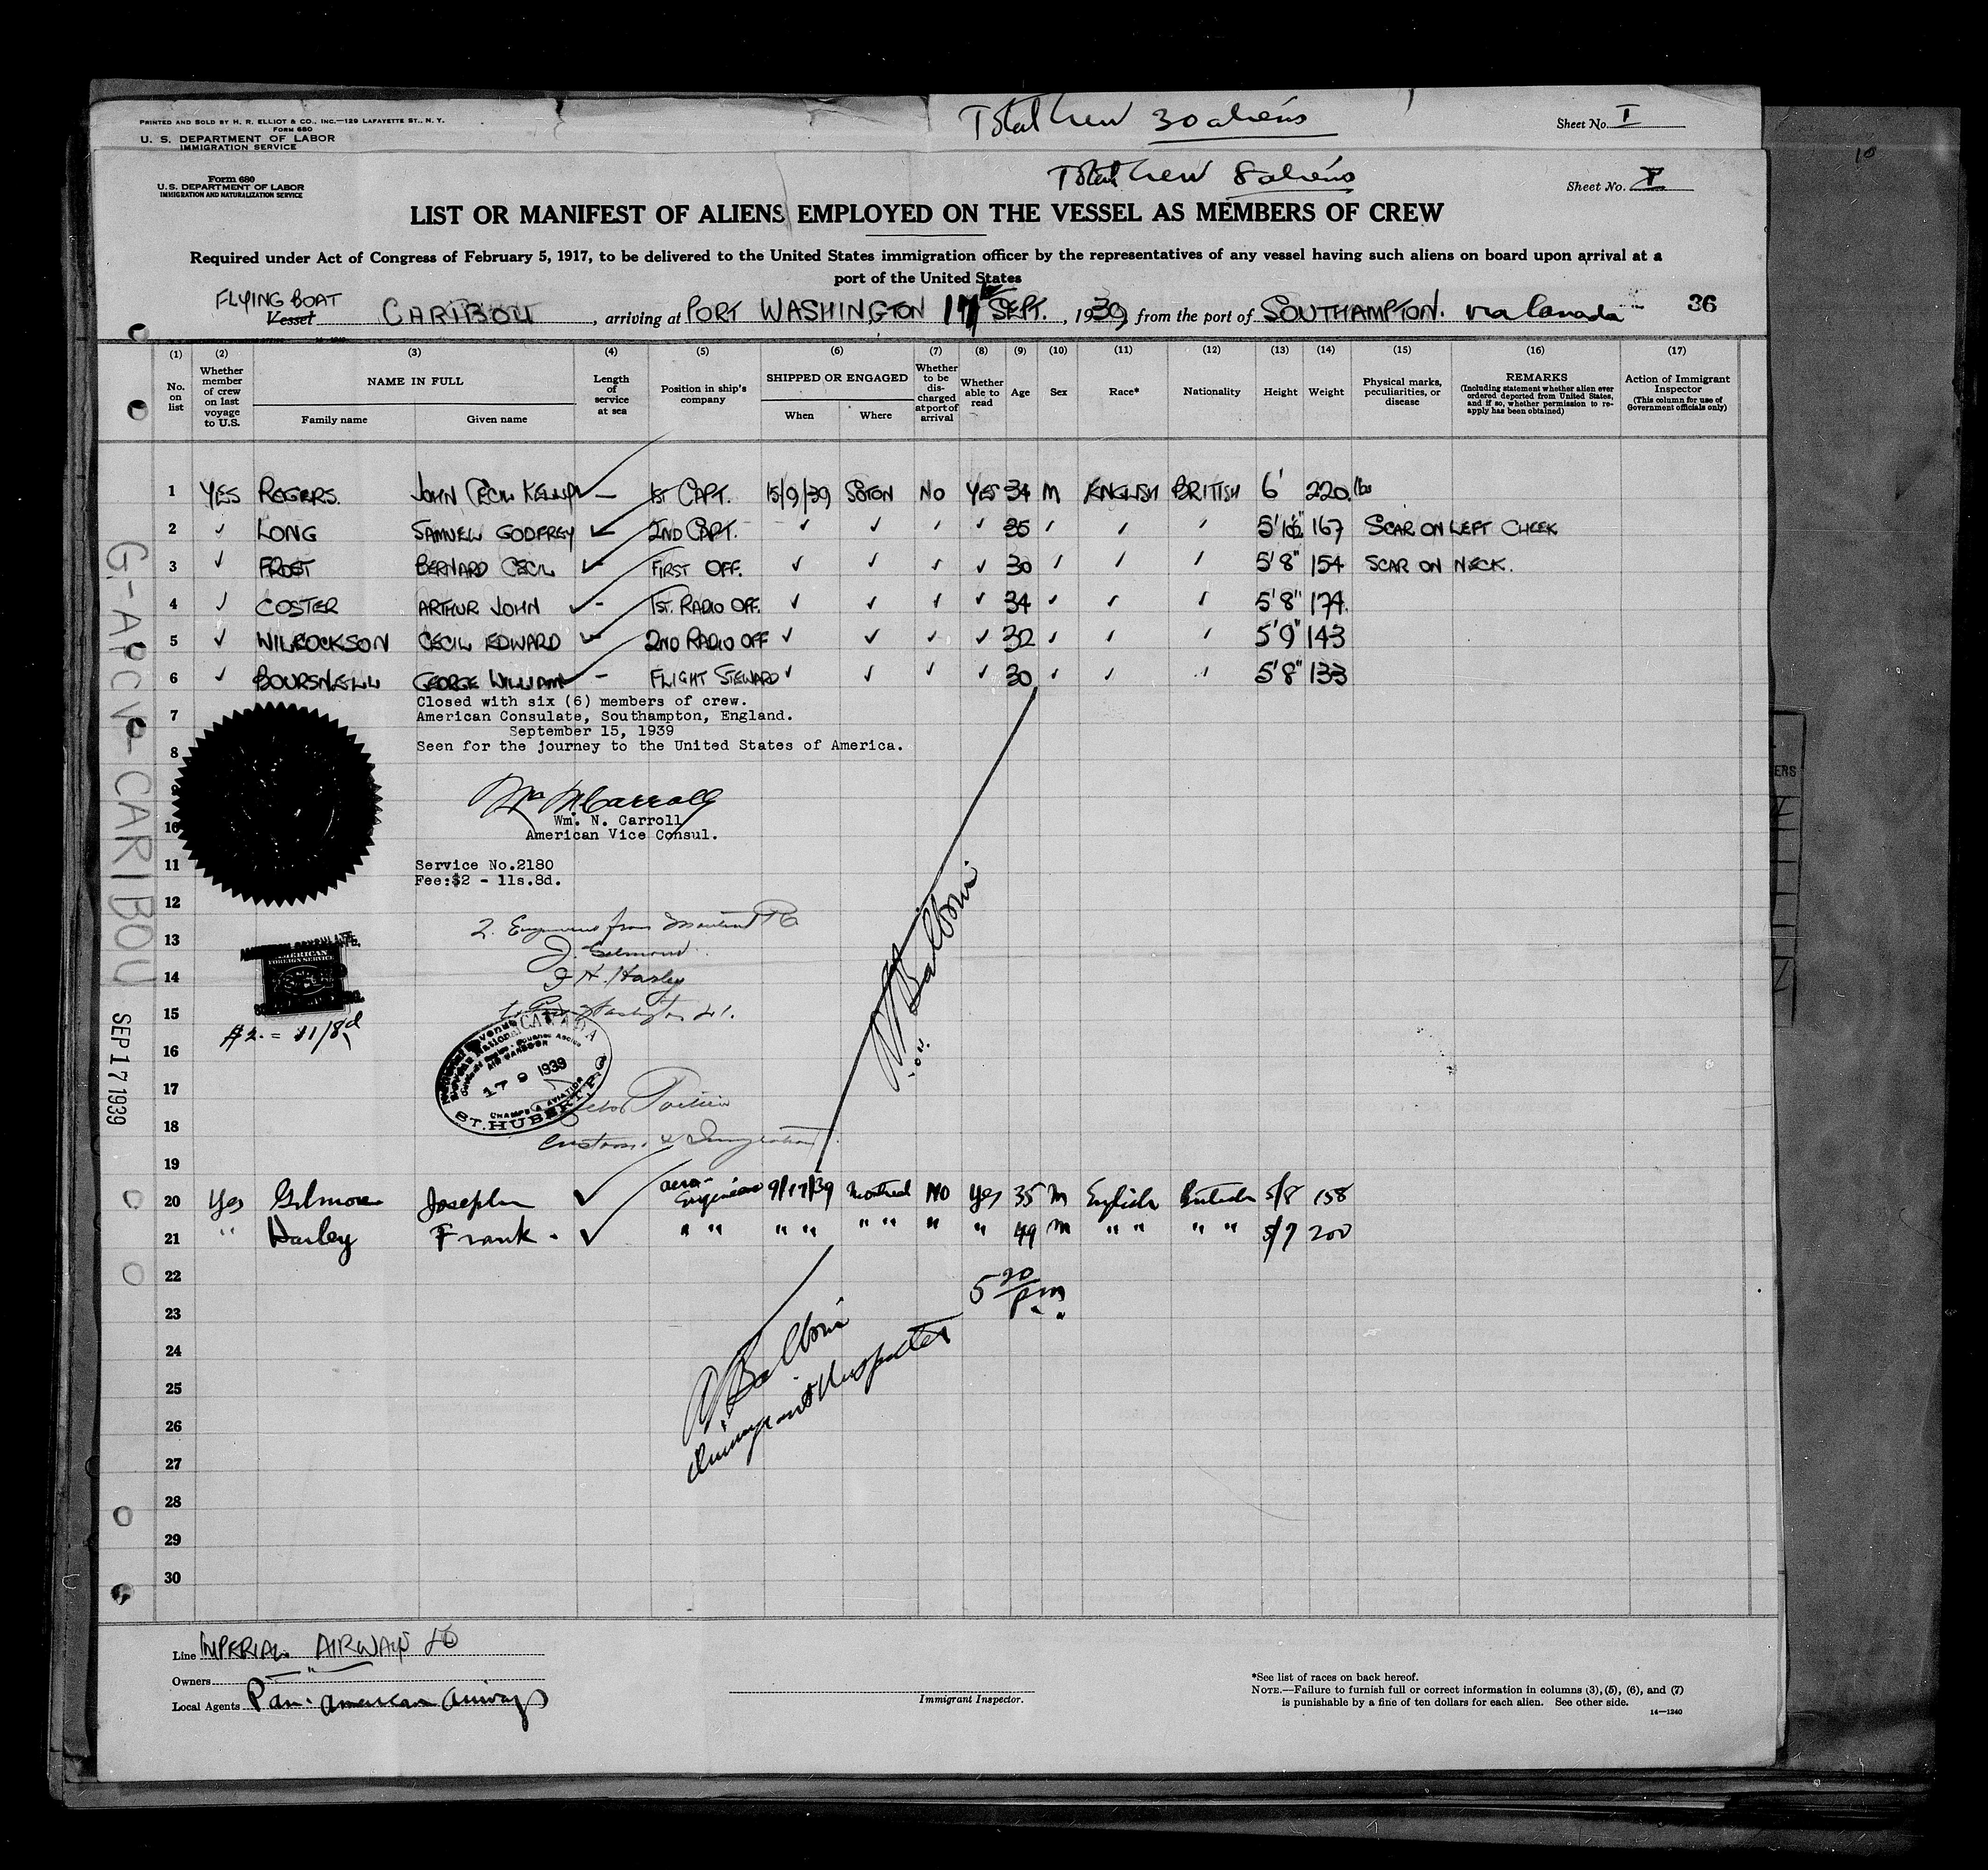 PRINTED AND SOLD BY H. R. ELLIOT & CO., INC.—129 LAFAYETTE ST., N. Y.
FORM 680
U. S. DEPARTMENT OF LABOR
IMMIGRATION SERVICE
Total Crew 30 aliens
Sheet No. I
Form 680
U.S. DEPARTMENT OF LABOR
IMMIGRATION AND NATURALIZATION SERVICE
Total Crew 8 aliens
Sheet No. I
LIST OR MANIFEST OF ALIENS EMPLOYED ON THE VESSEL AS MEMBERS OF CREW
Required under Act of Congress of February 5, 1917, to be delivered to the United States immigration officer by the representatives of any vessel having such aliens on board upon arrival at a
port of the United States
FLYING BOAT
Vessel CARIBOU, arriving at PORT WASHINGTON 17th SEPT., 1939, from the port of SOUTHAMPTON. via Canada 36
(1) (2) (3) (4) (5) (6) (7) (8) (9) (10) (11) (12) (13) (14) (15) (16) (17)
No. on list
Whether member of crew on last voyage to U.S.
NAME IN FULL
Family name
Given name
Length of service at sea
Position in ship's company
SHIPPED OR ENGAGED
When
Where
Whether to be discharged at port of arrival
Whether able to read
Age
Sex
Race*
Nationality
Height
Weight
Physical marks, peculiarities, or disease
REMARKS
(Including statement whether alien ever ordered deported from United States, and if so, whether permission to reapply has been obtained)
Action of Immigrant Inspector
(This column for use of Government officials only)
1 YES ROGERS. JOHN CECIL KELLY ✓ — 1ST CAPT. 15/9/39 SOTON NO YES 34 M ENGLISH BRITISH 6' 220 lbs
2 ✓ LONG SAMUEL GODFREY ✓ 2ND CAPT. ✓ ✓ ✓ ✓ 35 ✓ ✓ ✓ 5'10½" 167 SCAR ON LEFT CHEEK
3 ✓ FROST BERNARD CECIL ✓ FIRST OFF. ✓ ✓ ✓ ✓ 30 ✓ ✓ ✓ 5'8" 154 SCAR ON NECK.
4 ✓ COSTER ARTHUR JOHN ✓ - 1ST. RADIO OFF. ✓ ✓ ✓ ✓ 34 ✓ ✓ ✓ 5'8" 174.
5 ✓ WILCOCKSON CECIL EDWARD ✓ 2ND RADIO OFF ✓ ✓ ✓ ✓ 32 ✓ ✓ ✓ 5'9" 143
6 ✓ BOURSNELL GEORGE WILLIAM ✓ — FLIGHT STEWARD ✓ ✓ ✓ ✓ 30 ✓ ✓ ✓ 5'8" 133
Closed with six (6) members of crew.
7 American Consulate, Southampton, England.
September 15, 1939
8 Seen for the journey to the United States of America.
Wm N Carroll
10 Wm. N. Carroll
American Vice Consul.
11 Service No.2180
Fee:$2 - 11s.8d.
12
2. Engineers from Montreal PQ
13
J. Gilmore
14 F H. Harley
15
AMERICAN CONSULATE,
AMERICAN
FOREIGN SERVICE
$2. = 11/8d
16
CANADA
AIR HARBOUR
17 9 1939
CHAMPS d'AVIATION
ST. HUBERT, P.Q.
17
18 Customs & Immigration
19
A Balboni
20 Yes Gilmore Joseph ✓ aero-Engineer 9/17/39 Montreal NO Yes 35 M English British 5/8 158
21 " Harley Frank. ✓ " " " " " " " " 49 M " " " " 5/7 200
22
5 20 pm
23
24
25
26
27
28
29
30
A Balboni
Immigrant Inspector
G-ADCV- CARIBOU
SEP 17 1939
Line IMPERIAL AIRWAYS LTD
Owners "
Local Agents Pan. American Airways
Immigrant Inspector.
*See list of races on back hereof.
NOTE.—Failure to furnish full or correct information in columns (3), (5), (6), and (7)
is punishable by a fine of ten dollars for each alien. See other side.
14—1240